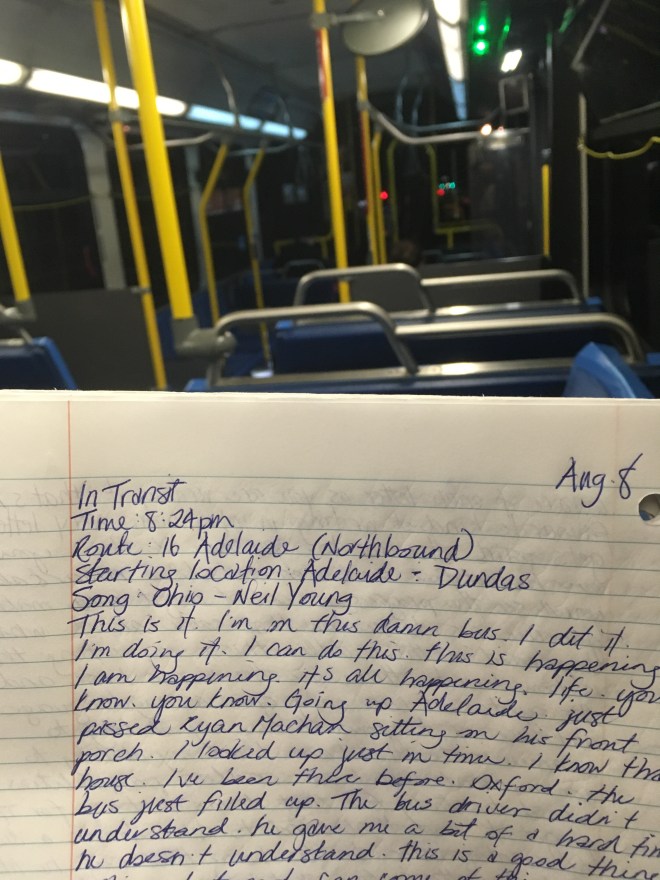 Aug. 8
In Transit
Time: 8:24pm
Route: 16 Adelaide (Northbound)
Starting location: Adelaide - Dundas
Song: Ohio - Neil Young
This is it. I'm on this damn bus. I did it.
I'm doing it. I can do this. this is happening
I am happening. it's all happening. life. you
know. you know. Going up Adelaide. just
passed Ryan Machan sitting on his front
porch. I looked up just in time. I know tha
house. I've been there before. Oxford. the
bus just filled up. The bus driver didn't
understand. he gave me a bit of a hard tim
he doesn't understand. this is a good thing
can come of